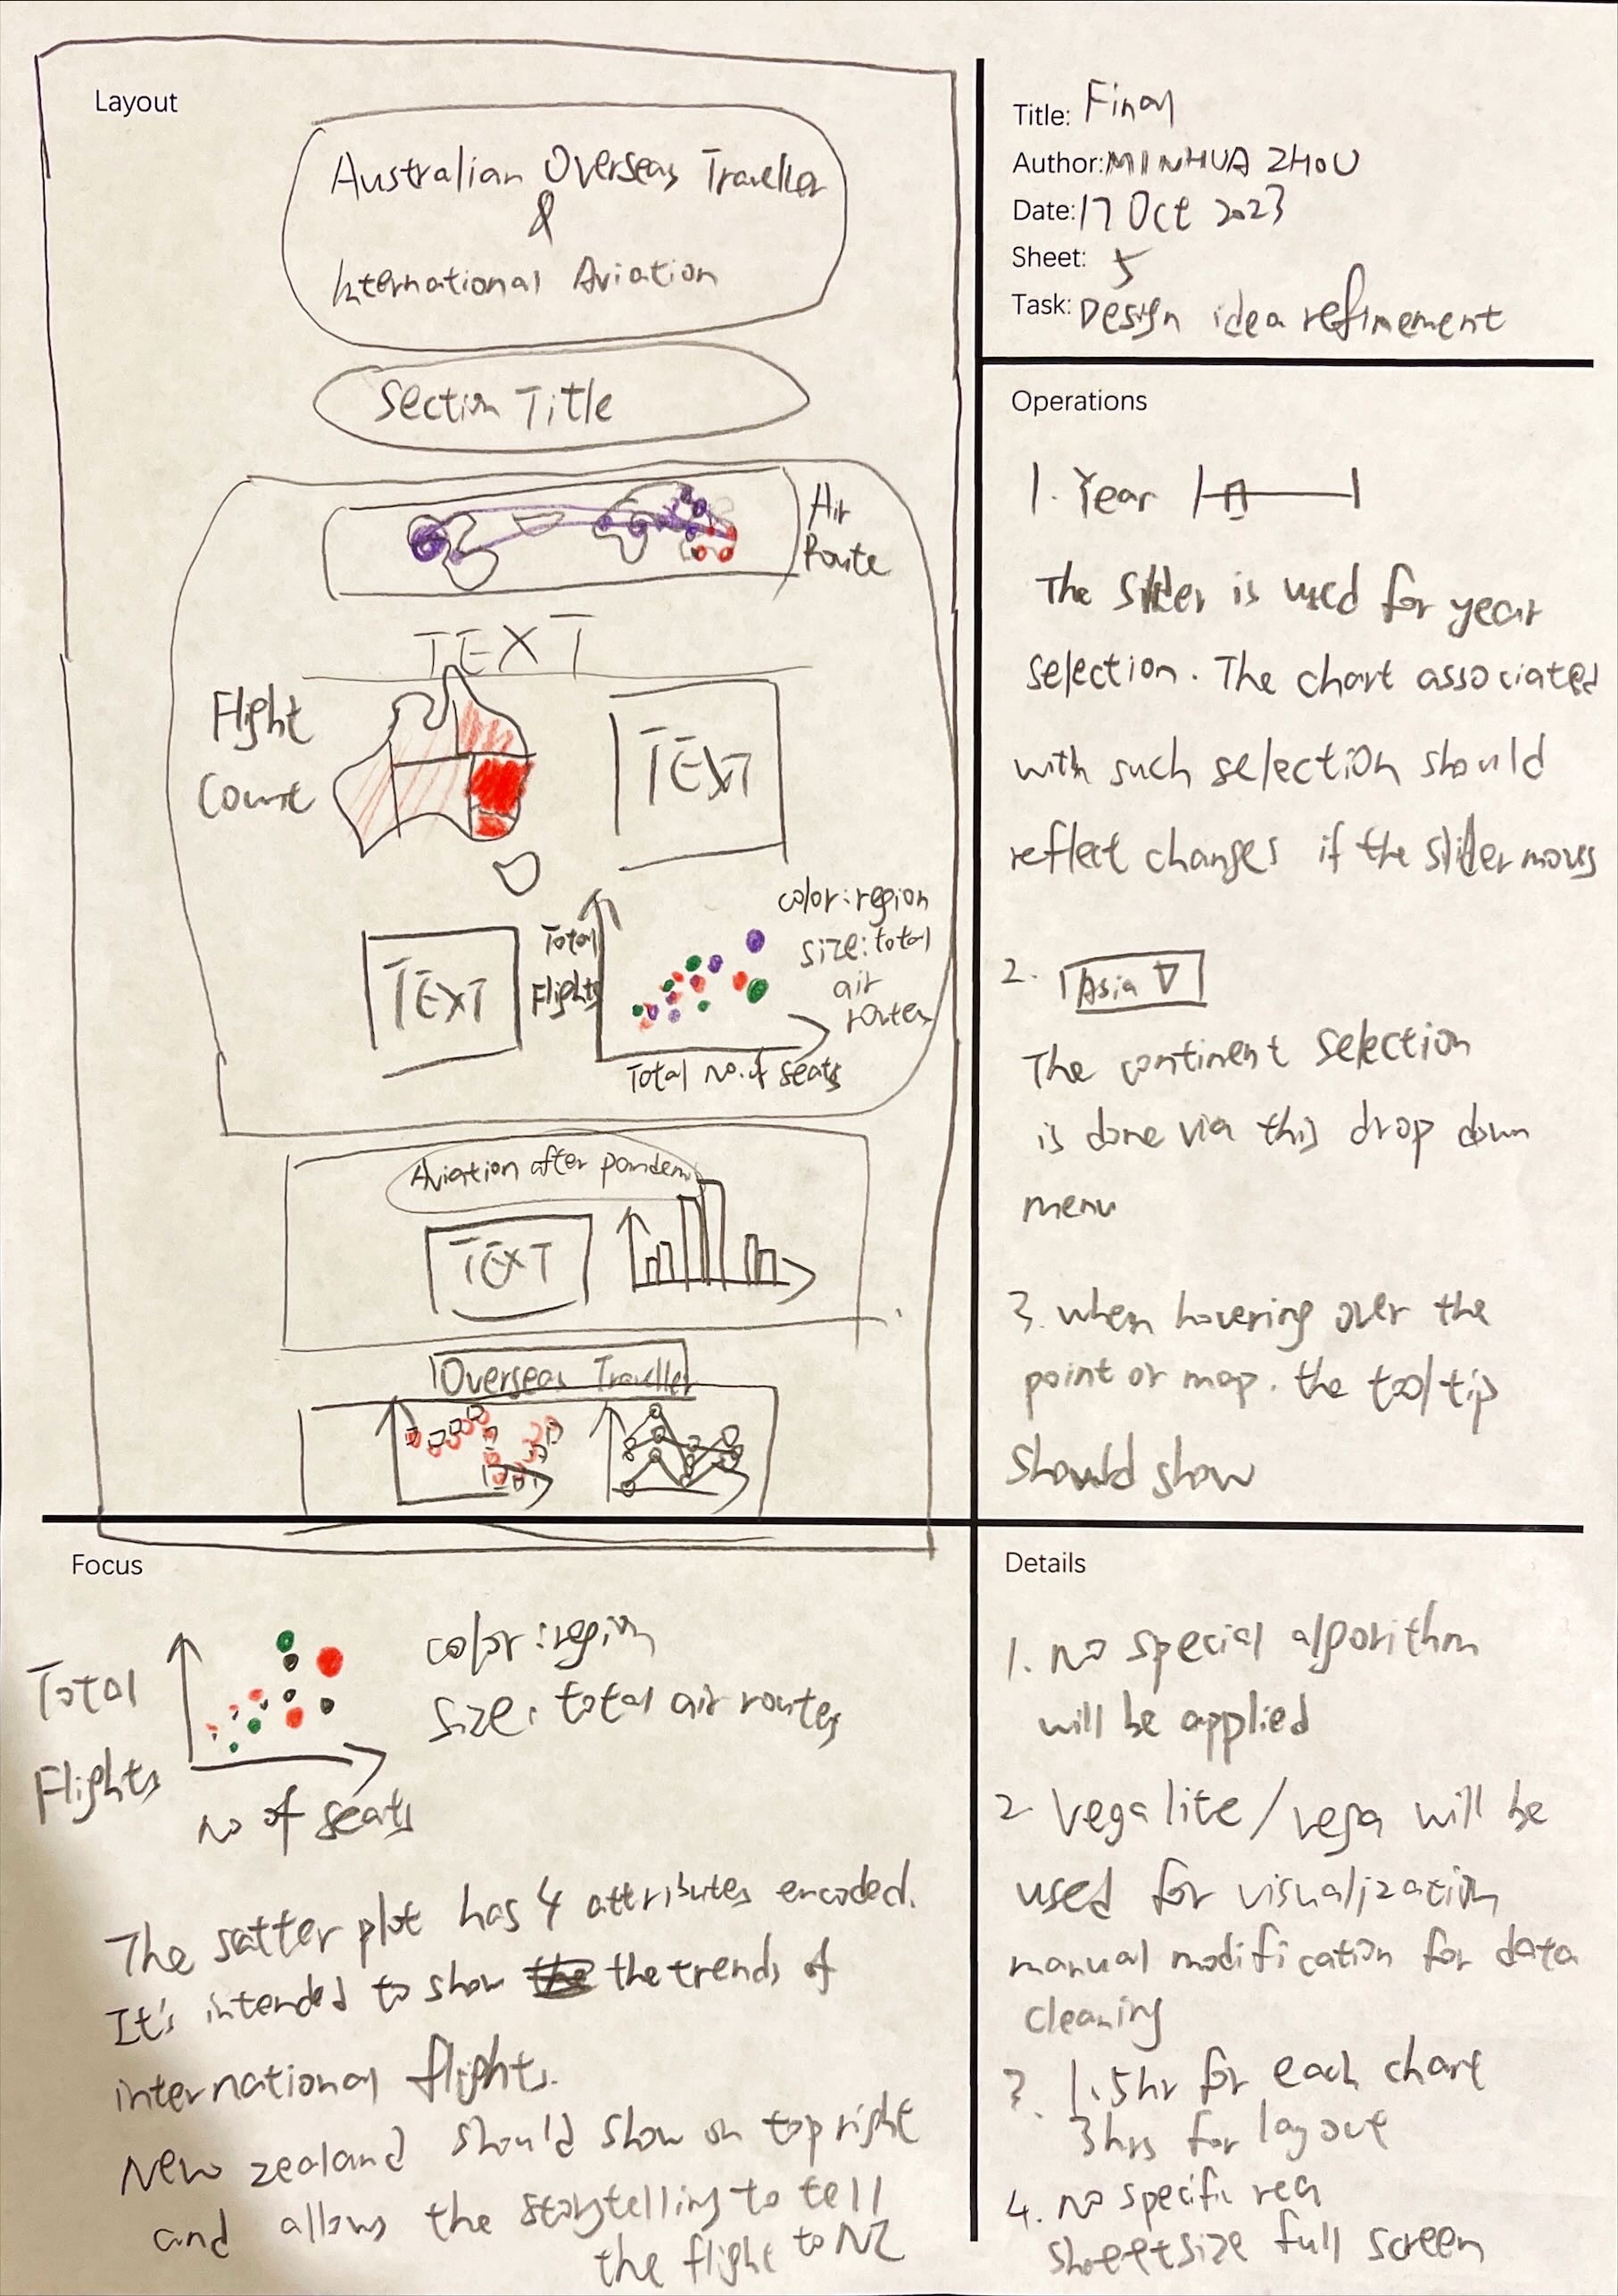 Layout
Australian Overseas Traveller
&
International Aviation
Section Title
Air
Route
TEXT
Flight
Count
TEXT
TEXT
Total
Flights
color: region
size: total
air
routes
Total No. of seats
Aviation after pandemi
TEXT
Overseas Traveller
Title: Final
Author: MINHUA ZHOU
Date: 17 Oct 2023
Sheet: 5
Task: Design idea refinement
Operations
1. Year
The slider is used for year
selection. The chart associated
with such selection should
reflect changes if the slider moves
2. Asia
The continent selection
is done via this drop down
menu
3. when hovering over the
point or map. the tooltip
should show
Focus
Total
Flights
No of seats
color: region
size: total air routes
The satter plot has 4 attributes encoded.
It's intended to show the the trends of
international flights.
New zealand should show on top right
and allows the storytelling to tell
the flight to NZ
Details
1. no special algorithm
will be applied
2. Vega lite / vega will be
used for visualization
manual modification for data
cleaning
3. 1.5hr for each chart
3hrs for layout
4. no specific req
sheetsize full screen